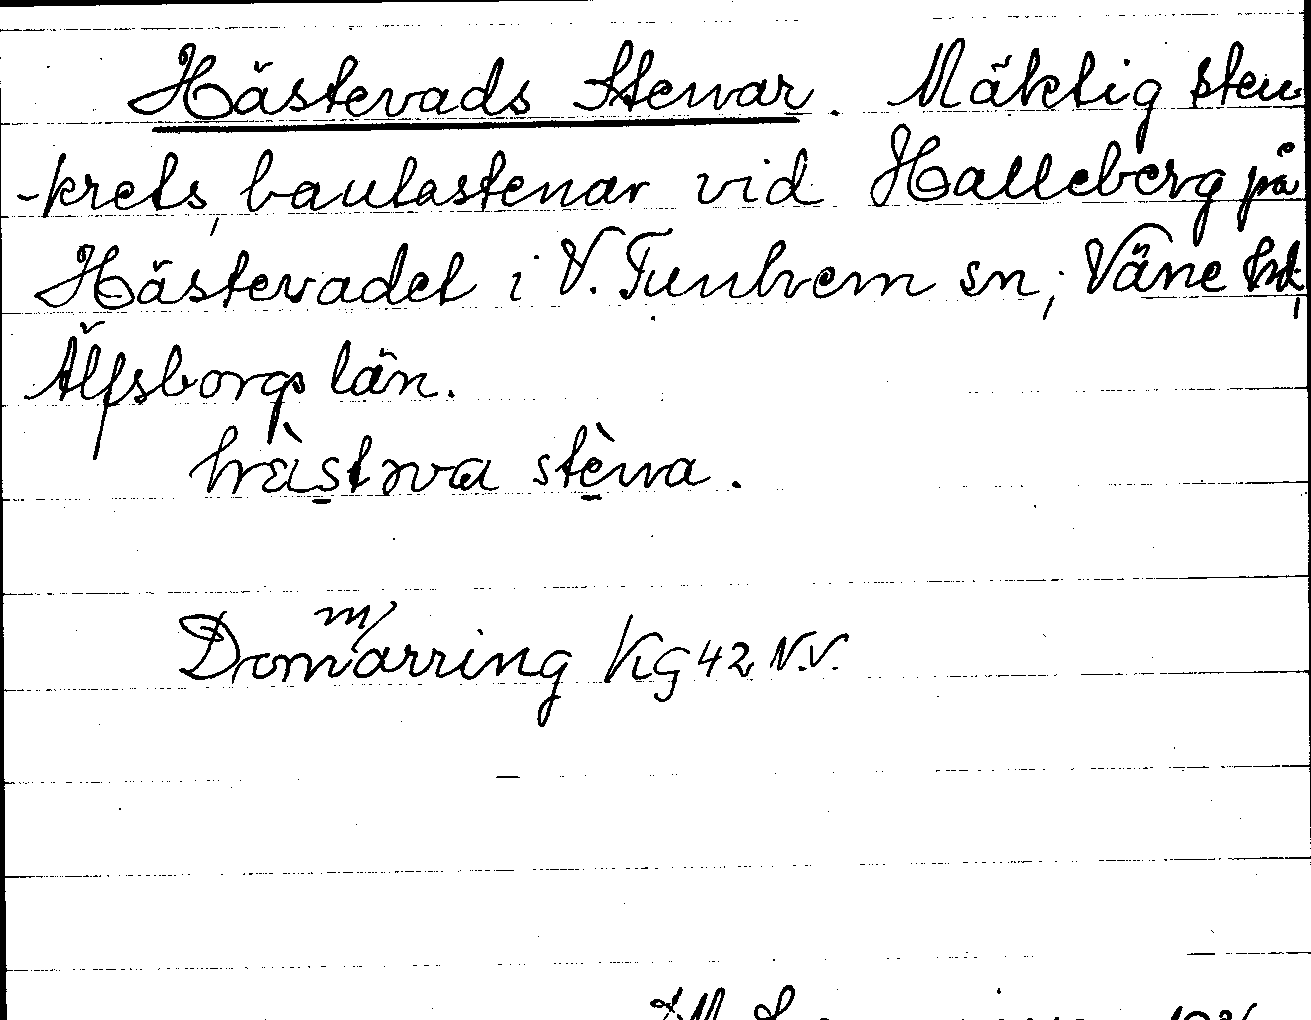 Hästevads Stenar. Mäktig sten
-krets, bautastenar vid Halleberg på
Hästevadet i V. Tunhem sn, Väne hd,
Älfsborgs län.
stèna.
Domarring KG 42 N.V.
m